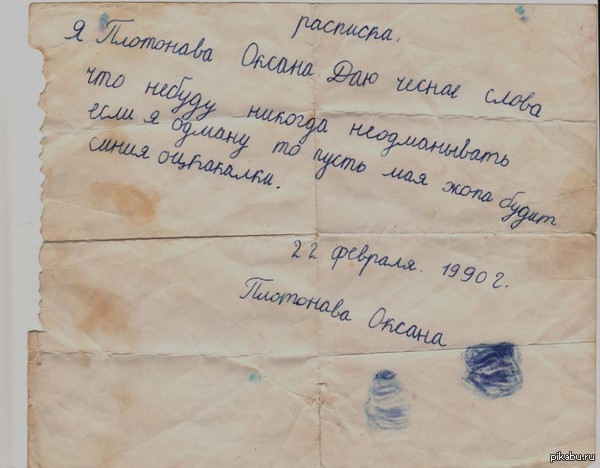 расписка.
Я Плотонава Оксана Даю чеснае слова
что небуду никогда неодманывать
если я одману то пусть мая жопа будит
синия оцкакалки.
22 февраля. 1990 г.
Плотонава Оксана
pikabu.ru